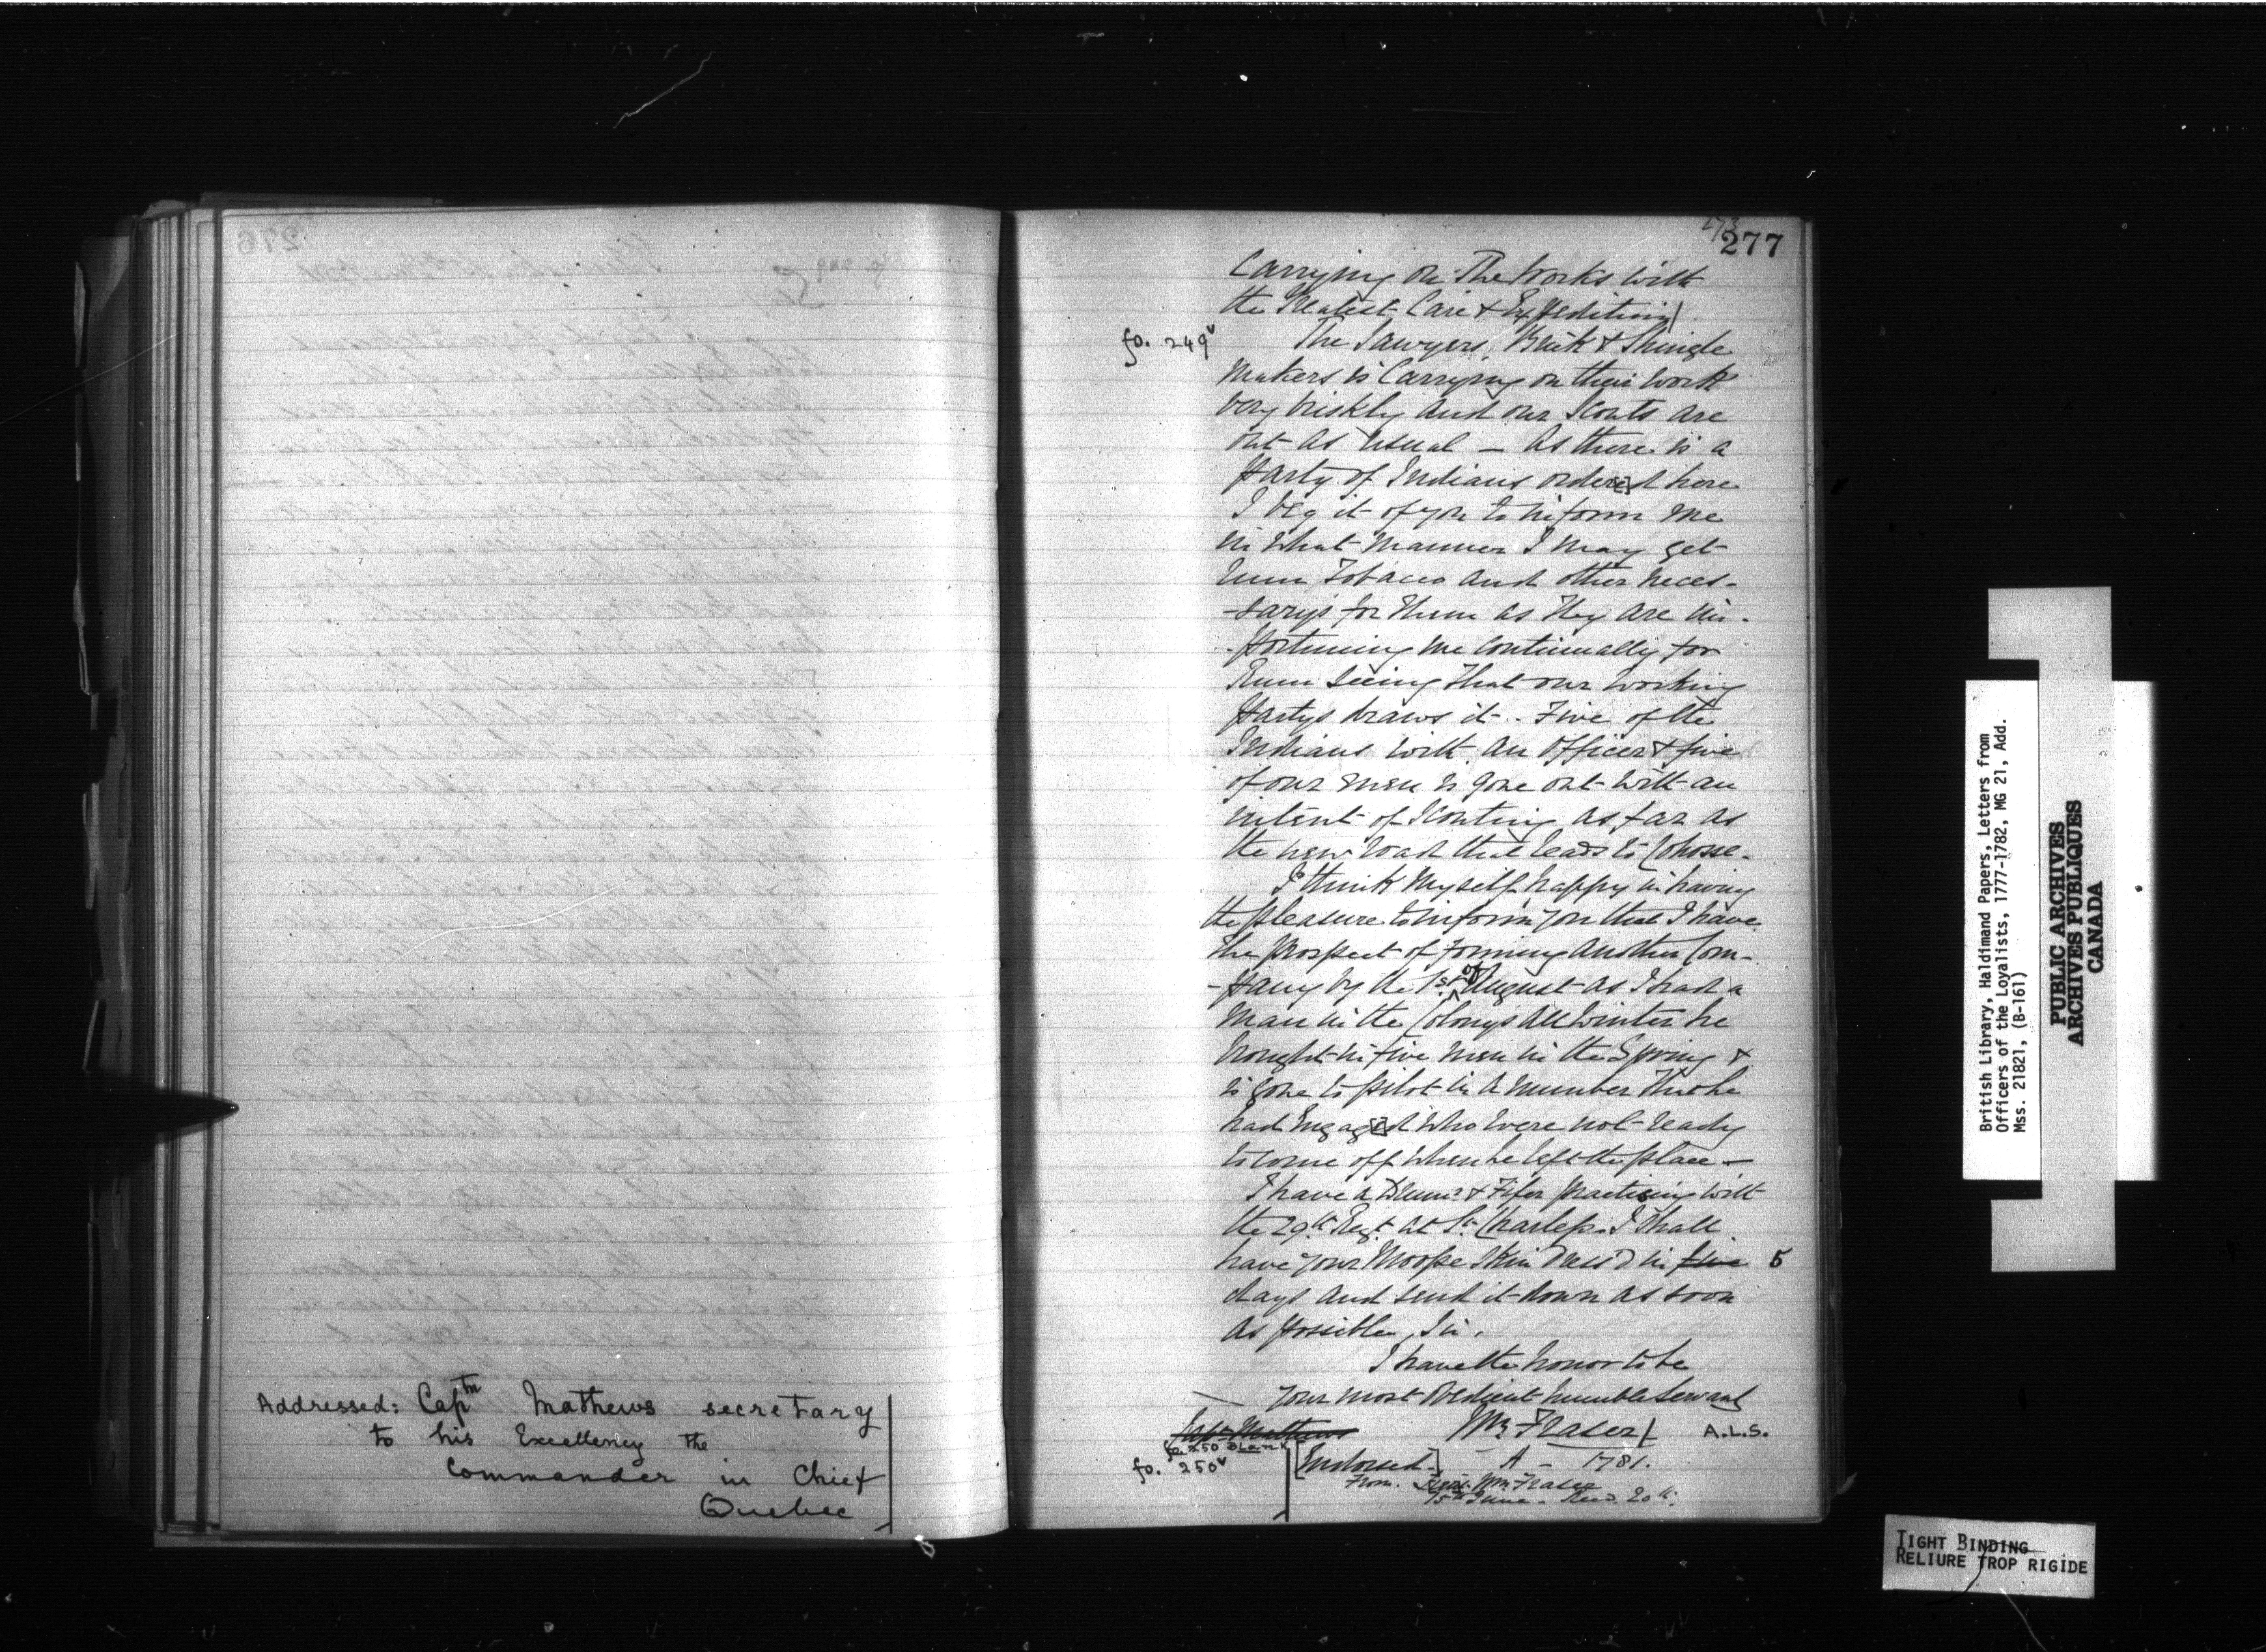 277
Carrying on The Works with
the Greatest Care & Expedition/
fo. 249v The Sawyers, Brick & Shingle
makers is Carrying on their work
very briskly and our Scouts are
out as usual — As there is a
party of Indians order[e]d here
I beg it of you to inform me
in what manner I may get
Rum Tobacco and other neces-
-sarys for them as they are im-
-portuning me continually for
Rum seeing that our working
partys draws it.. Five of the
Indians with an Officer & five
of our men is gone out with an
intent of Scouting as far as
the new road that leads to Cohosse.
I think myself happy in having
the pleasure to inform you that I have
the prospect of forming another Com-
-pany by the 1st of August as I had a
man in the Colonys all winter he
brought in five men in the Spring &
is gone to pilot in a number that he
had Engag[e]d who were not ready
to come off when he left the place —
I have a Drumr. & Fifer practising with
the 29th Regt. at St. Charles. I shall
have your Moose Skin dress'd in five 5
days and send it down as soon
as possible, Sir.
I have the honor to be
your most Obedient humble Servant
Capt. Mathews Wm Fraser/ A.L.S.
fo. 250 Blank
fo. 250v [Endorsed-] - A - 1781.
From Wm. Fraser
15th June - Recd. 20th.
Addressed: Captn Mathews secretary
to his Excellency the
Commander in Chief
Quebec
British Library, Haldimand Papers, Letters from
Officers of the Loyalists, 1777-1782, MG 21, Add.
Mss. 21821, (B-161)
PUBLIC ARCHIVES
ARCHIVES PUBLIQUES
CANADA
TIGHT BINDING
RELIURE TROP RIGIDE